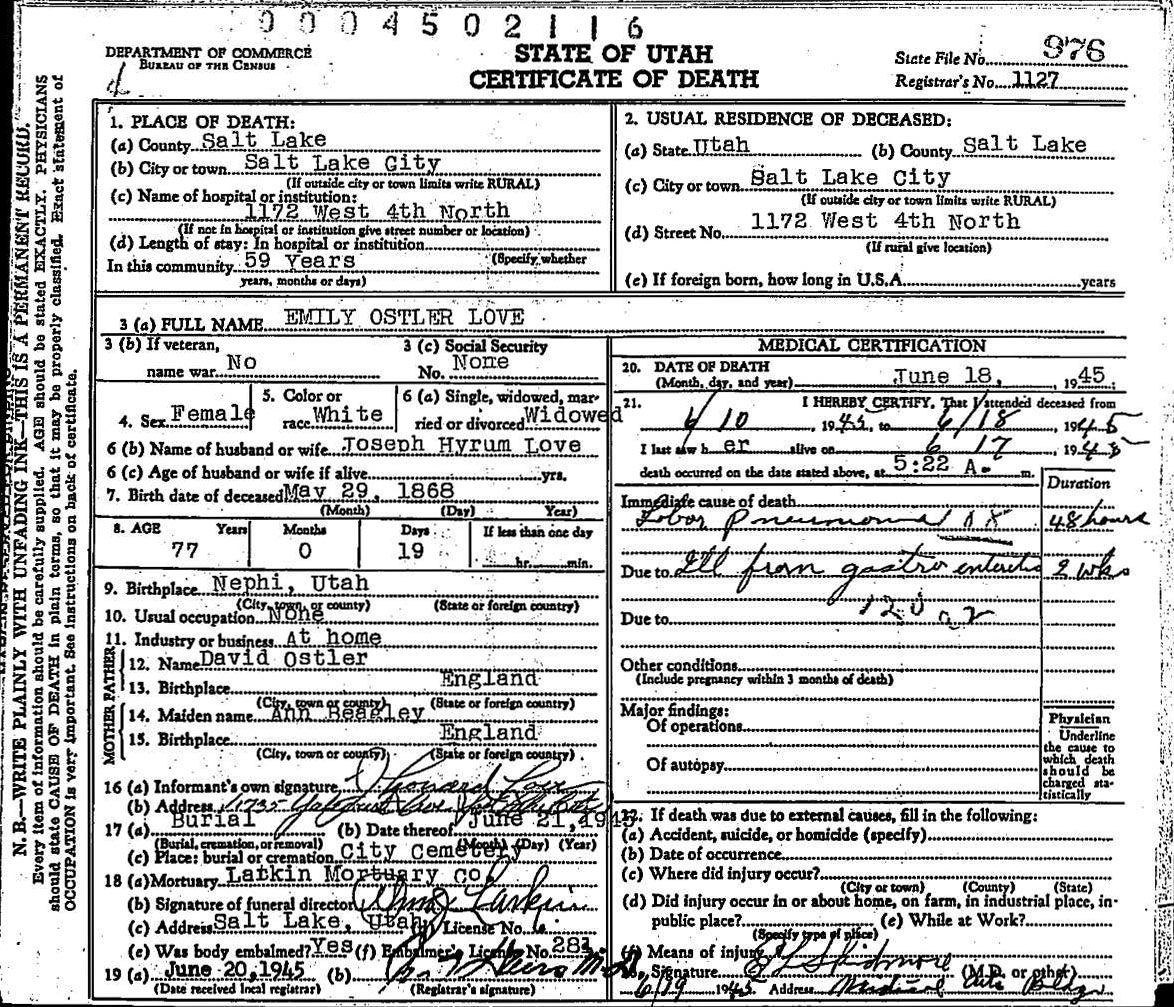 0 0 0 4 5 0 2 1 1 6
DEPARTMENT OF COMMERCE
BUREAU OF THE CENSUS
STATE OF UTAH
CERTIFICATE OF DEATH
State File No. 976
Registrar's No. 1127
N. B.—WRITE PLAINLY WITH UNFADING INK—THIS IS A PERMANENT RECORD.
Every item of information should be carefully supplied. AGE should be stated EXACTLY. PHYSICIANS
should state CAUSE OF DEATH in plain terms, so that it may be properly classified. Exact statement of
OCCUPATION is very important. See instructions on back of certificate.
1. PLACE OF DEATH:
(a) County Salt Lake
(b) City or town Salt Lake City
(If outside city or town limits write RURAL)
(c) Name of hospital or institution:
1172 West 4th North
(If not in hospital or institution give street number or location)
(d) Length of stay: In hospital or institution
(Specify whether
In this community 59 Years
years, months or days)
2. USUAL RESIDENCE OF DECEASED:
(a) State Utah (b) County Salt Lake
(c) City or town Salt Lake City
(If outside city or town limits write RURAL)
(d) Street No. 1172 West 4th North
(If rural give location)
(e) If foreign born, how long in U.S.A. years
3 (a) FULL NAME EMILY OSTLER LOVE
3 (b) If veteran,
name war No
3 (c) Social Security
No. None
4. Sex Female
5. Color or
race White
6 (a) Single, widowed, mar-
ried or divorced Widowed
6 (b) Name of husband or wife Joseph Hyrum Love
6 (c) Age of husband or wife if alive yrs.
7. Birth date of deceased May 29, 1868
(Month) (Day) Year)
8. AGE Years Months Days If less than one day
77 0 19 hr. min.
9. Birthplace Nephi, Utah
(City, town, or county) (State or foreign country)
10. Usual occupation None
11. Industry or business At home
FATHER
12. Name David Ostler
13. Birthplace England
(City, town or county) (State or foreign country)
MOTHER
14. Maiden name Ann Beagley
15. Birthplace England
(City, town or county) (State or foreign country)
16 (a) Informant's own signature Love
(b) Address 1735
17 (a) Burial (b) Date thereof June 21, 1945
(Burial, cremation, or removal) (Month) (Day) (Year)
(c) Place: burial or cremation City Cemetery
18 (a) Mortuary Larkin Mortuary Co.
(b) Signature of funeral director Larkin
(c) Address Salt Lake, Utah License No.
(e) Was body embalmed? Yes (f) Embalmer's License No. 281
19 (a) June 20, 1945 (b)
(Date received local registrar) (Registrar's signature)
MEDICAL CERTIFICATION
20. DATE OF DEATH
(Month, day, and year) June 18, 1945
21. I HEREBY CERTIFY, That I attended deceased from
6/10, 1945, to 6/18 1945
I last saw her alive on 6 17 1945
death occurred on the date stated above, at 5:22 A. m.
Duration
Immediate cause of death
Lobar Pneumonia 108 48 hours
Due to Ill from gastro enteritis 2 wks
Due to 120
Other conditions
(Include pregnancy within 3 months of death)
Major findings:
Of operations
Of autopsy
Physician
Underline
the cause to
which death
should be
charged sta-
tistically
22. If death was due to external causes, fill in the following:
(a) Accident, suicide, or homicide (specify)
(b) Date of occurrence
(c) Where did injury occur?
(City or town) (County) (State)
(d) Did injury occur in or about home, on farm, in industrial place, in
public place? (e) While at Work?
(Specify type of place)
(f) Means of injury
Signature Skidmore (M.D. or other)
6/19 1945 Address Medical Arts Bldg